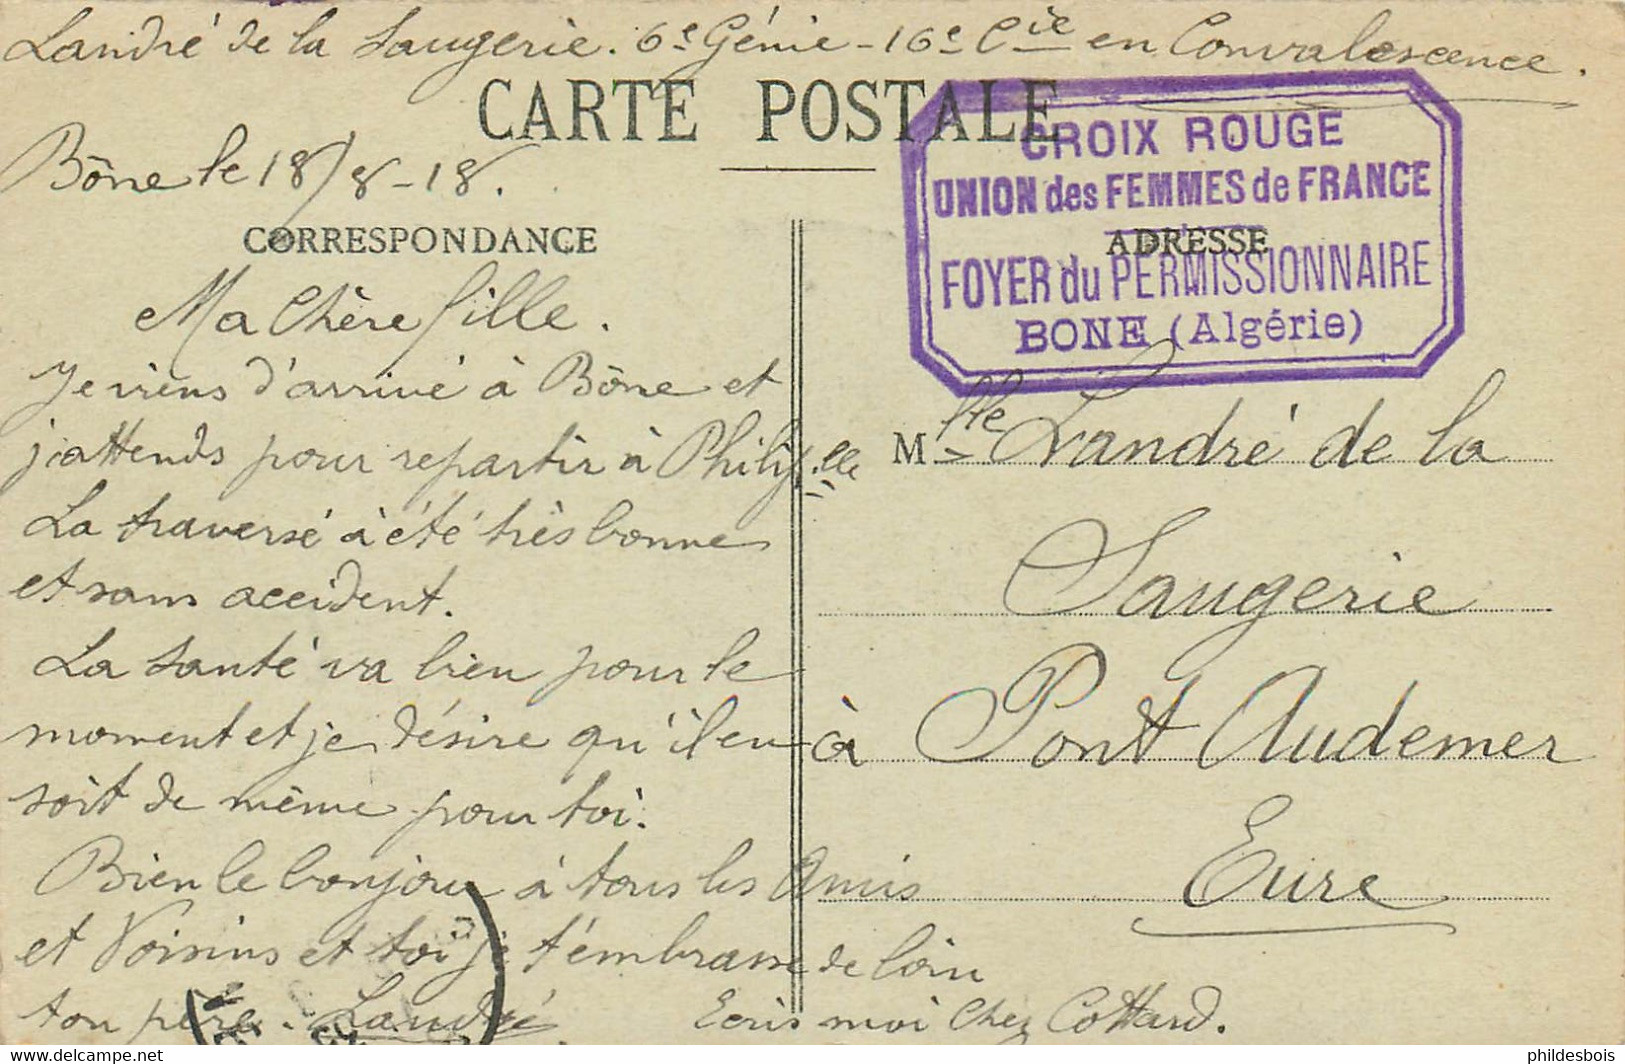 Landré de la Saugerie. 6e Génie - 16e Cie en Convalescence.
CARTE POSTALE
CROIX ROUGE
UNION des FEMMES de FRANCE
FOYER du PERMISSIONNAIRE
BONE (Algérie)
Bône le 18/8-18.
CORRESPONDANCE
Ma Chère fille.
Je viens d'arrivé à Bône et
j'attends pour repartir à Philip.lle
La traversé à été très bonne
et sans accident.
La santé va bien pour le
moment et je désire qu'il en
soit de même pour toi.
Bien le bonjour à tous les Amis
et Voisins et toi je t'embrasse de loin
ton père. Landré
Ecris moi Chez Cottard.
ADRESSE
Mlle Landré de la
Saugerie
à Pont Audemer
Eure
www.delcampe.net
phildesbois